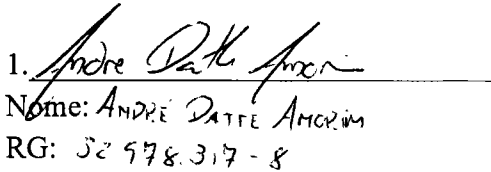 1. Andre Datte Amorim
Nome: ANDRÉ DATTE AMORIM
RG: 52 978.317-8